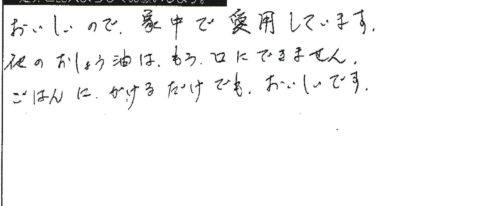 おいしいので、家中で愛用しています。
他のおしょう油は、もう、口にできません。
ごはんに、かけるだけでも、おいしいです。